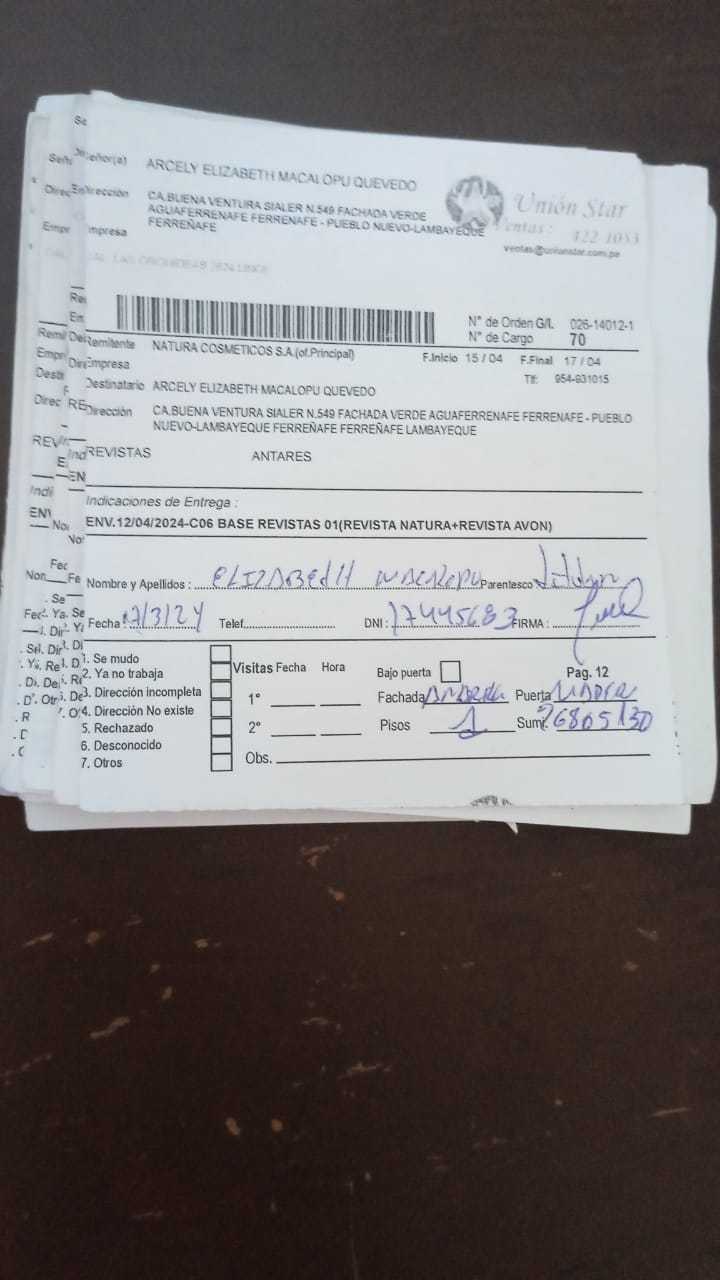 Señor(a) ARCELY ELIZABETH MACALOPU QUEVEDO
Dirección CA.BUENA VENTURA SIALER N.549 FACHADA VERDE
AGUAFERRENAFE FERRENAFE - PUEBLO NUEVO-LAMBAYEQUE
Empresa FERREÑAFE
Unión Star
Ventas : 422 1053
ventas@unionstar.com.pe
N° de Orden G/I. 026-14012-1
N° de Cargo 70
Remitente NATURA COSMETICOS S.A.(of.Principal)
F.Inicio 15 / 04 F.Final 17 / 04
Empresa
Tlf: 954-931015
Destinatario ARCELY ELIZABETH MACALOPU QUEVEDO
Dirección CA.BUENA VENTURA SIALER N.549 FACHADA VERDE AGUAFERRENAFE FERRENAFE - PUEBLO
NUEVO-LAMBAYEQUE FERREÑAFE FERREÑAFE LAMBAYEQUE
REVISTAS ANTARES
Indicaciones de Entrega :
ENV.12/04/2024-C06 BASE REVISTAS 01(REVISTA NATURA+REVISTA AVON)
Nombre y Apellidos : ELIZABETH MACALOPU Parentesco
Fecha 17/3/24 Telef. DNI : 17445683 FIRMA :
1. Se mudo
2. Ya no trabaja
3. Dirección incompleta
4. Dirección No existe
5. Rechazado
6. Desconocido
7. Otros
Visitas Fecha Hora
1°
2°
Obs.
Bajo puerta Pag. 12
Fachada Puerta MADERA
Pisos 1 Sumi. 26805130